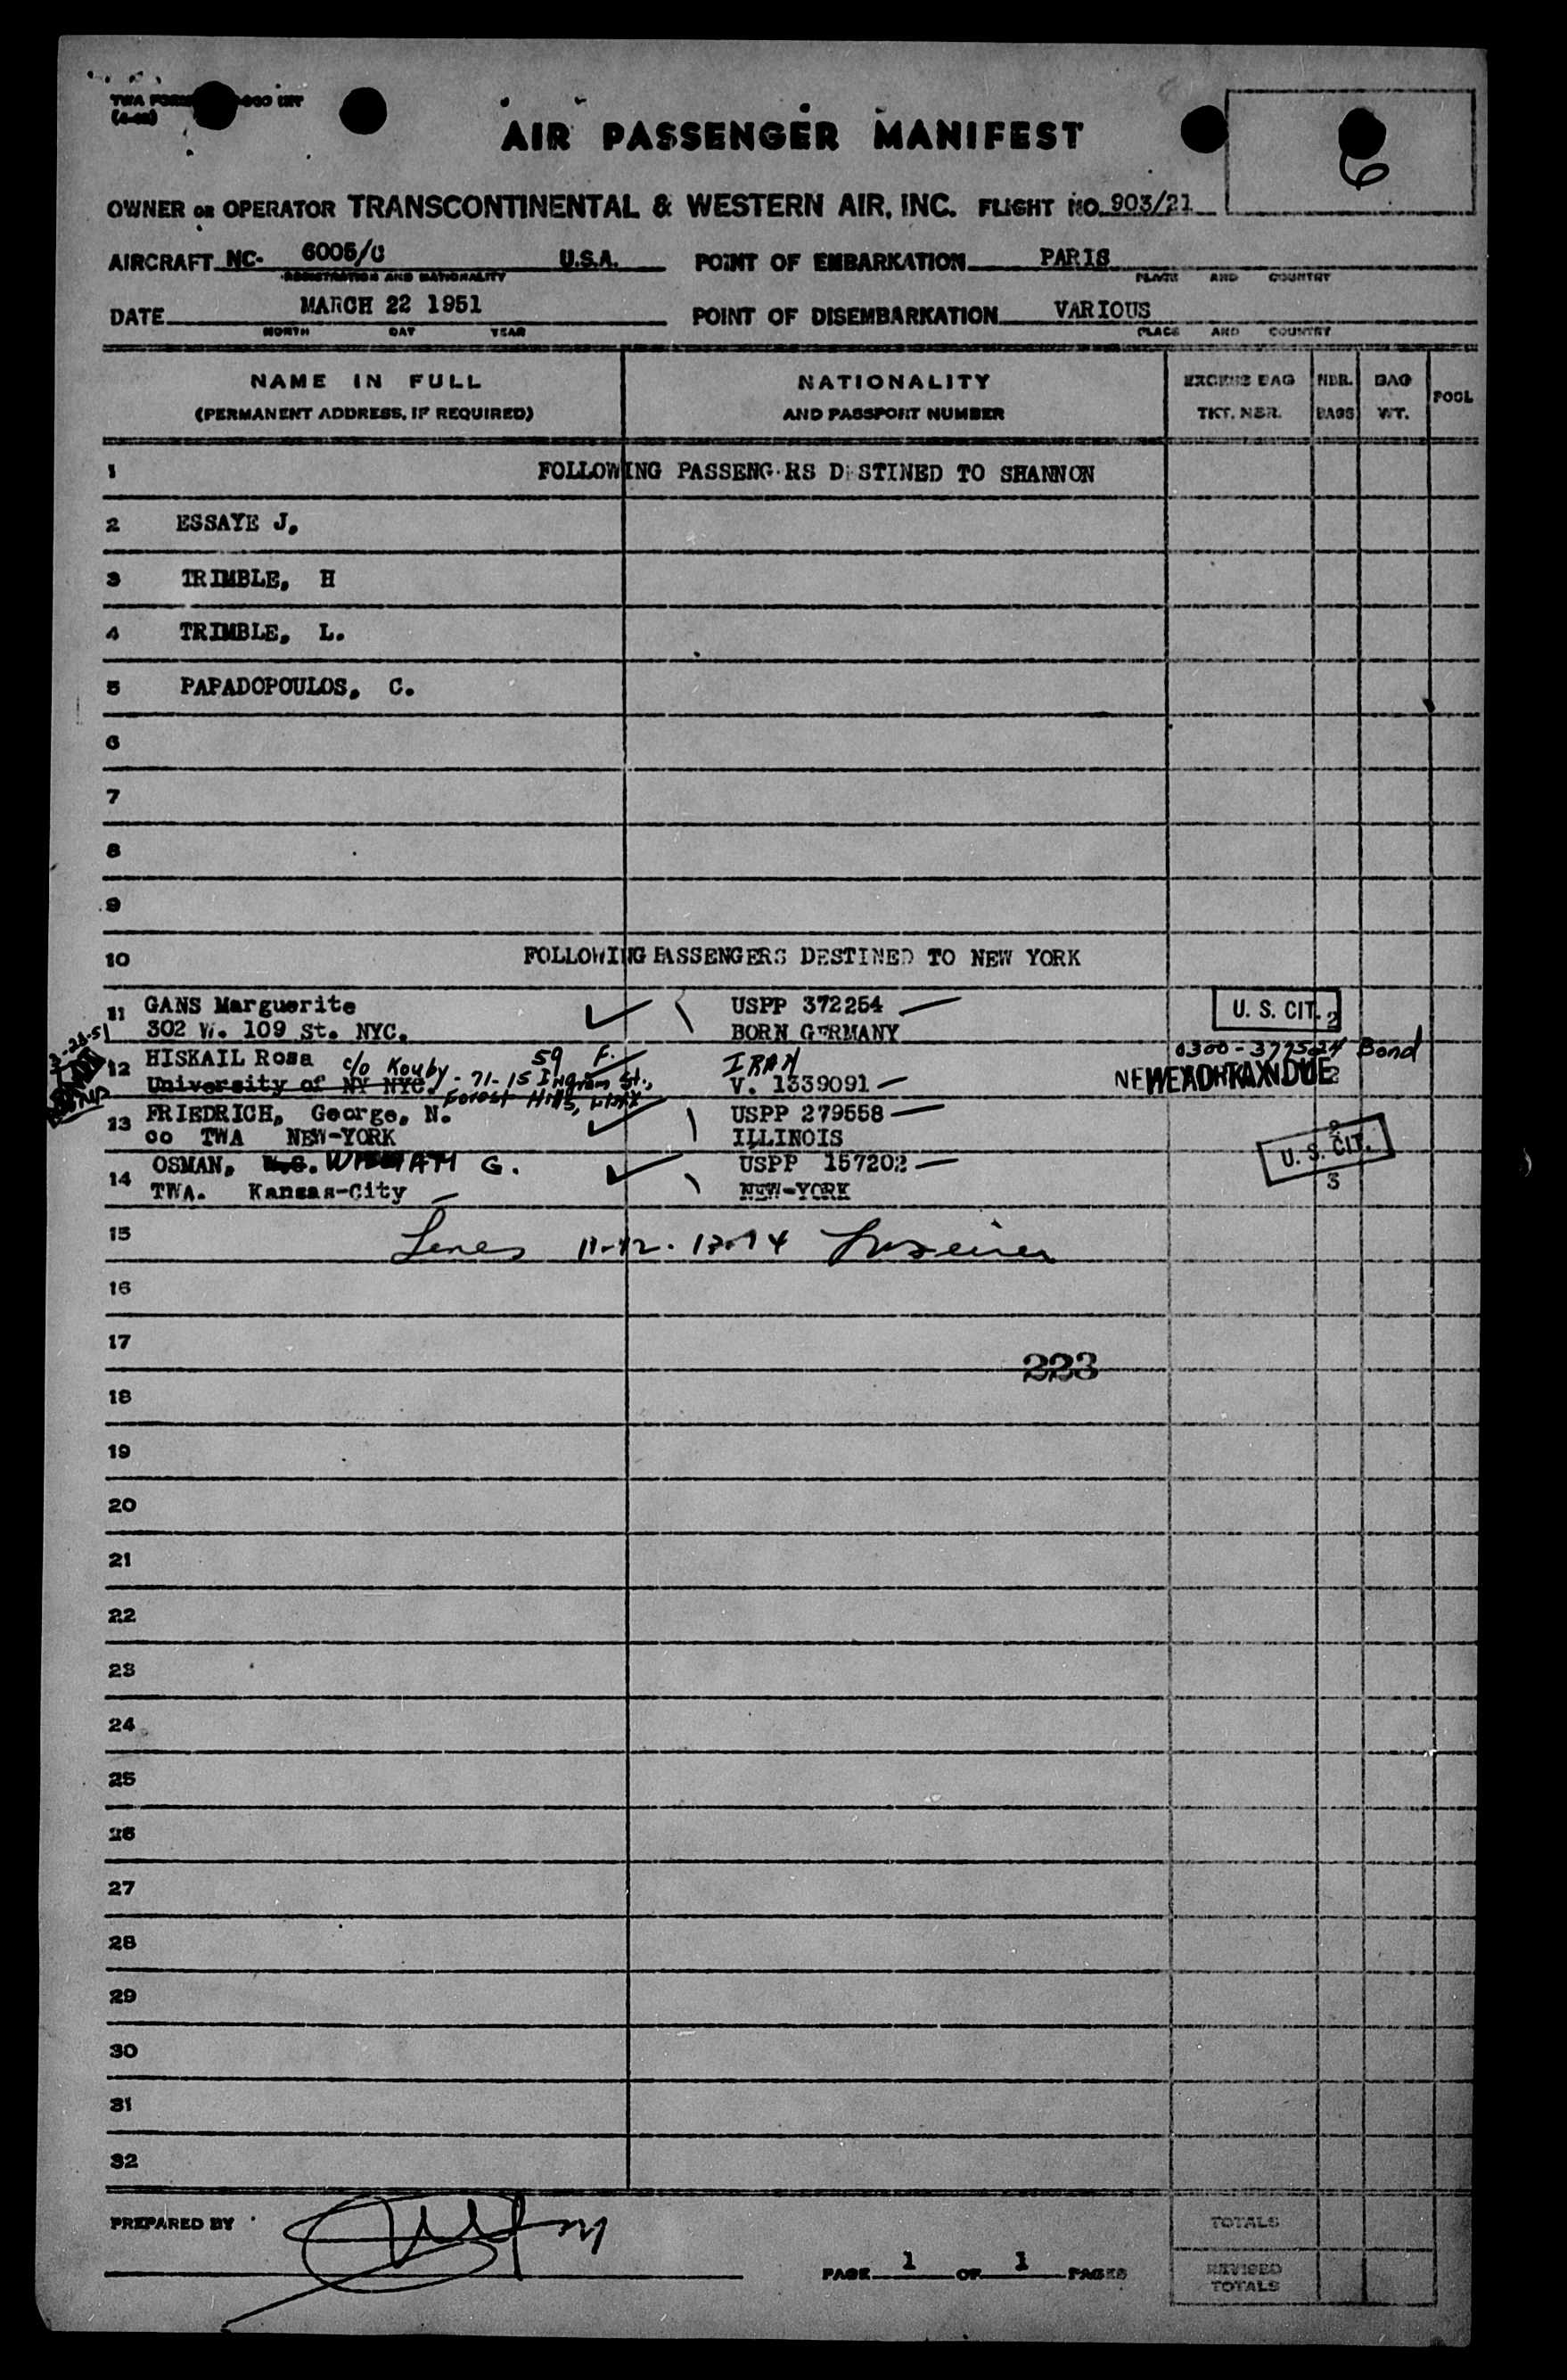 AIR PASSENGER MANIFEST
6
OWNER OR OPERATOR TRANSCONTINENTAL & WESTERN AIR, INC. FLIGHT NO. 903/21
AIRCRAFT NC- 6005/C U.S.A. POINT OF EMBARKATION PARIS
REGISTRATION AND NATIONALITY PLACE AND COUNTRY
DATE MARCH 22 1951 POINT OF DISEMBARKATION VARIOUS
MONTH DAY YEAR PLACE AND COUNTRY
NAME IN FULL NATIONALITY EXCESS BAG NBR. BAG POOL
(PERMANENT ADDRESS, IF REQUIRED) AND PASSPORT NUMBER TKT. NBR. BAGS WT.
1 FOLLOWING PASSENG RS D STINED TO SHANNON
2 ESSAYE J.
3 TRIMBLE, H
4 TRIMBLE, L.
5 PAPADOPOULOS, C.
6
7
8
9
10 FOLLOWING PASSENGERS DESTINED TO NEW YORK
11 GANS Marguerite USPP 372254 U. S. CIT. 2
302 W. 109 St. NYC. BORN GERMANY
3-28-51
12 HISKAIL Rosa c/o Kouby 59 F. IRAN Bond
University of NY NYC. - 71-15 Ingram St., V. 1339091 2
Forest Hills,
13 FRIEDRICH, George, N. USPP 279558 2
co TWA NEW-YORK ILLINOIS U. S. CIT.
14 OSMAN, G. USPP 157202
TWA. Kansas-City NEW-YORK 3
15 Lines 11-12-13-14
16
17
223
18
19
20
21
22
23
24
25
26
27
28
29
30
31
32
PREPARED BY TOTALS
PAGE 1 OF 1 PAGES REVISED
TOTALS